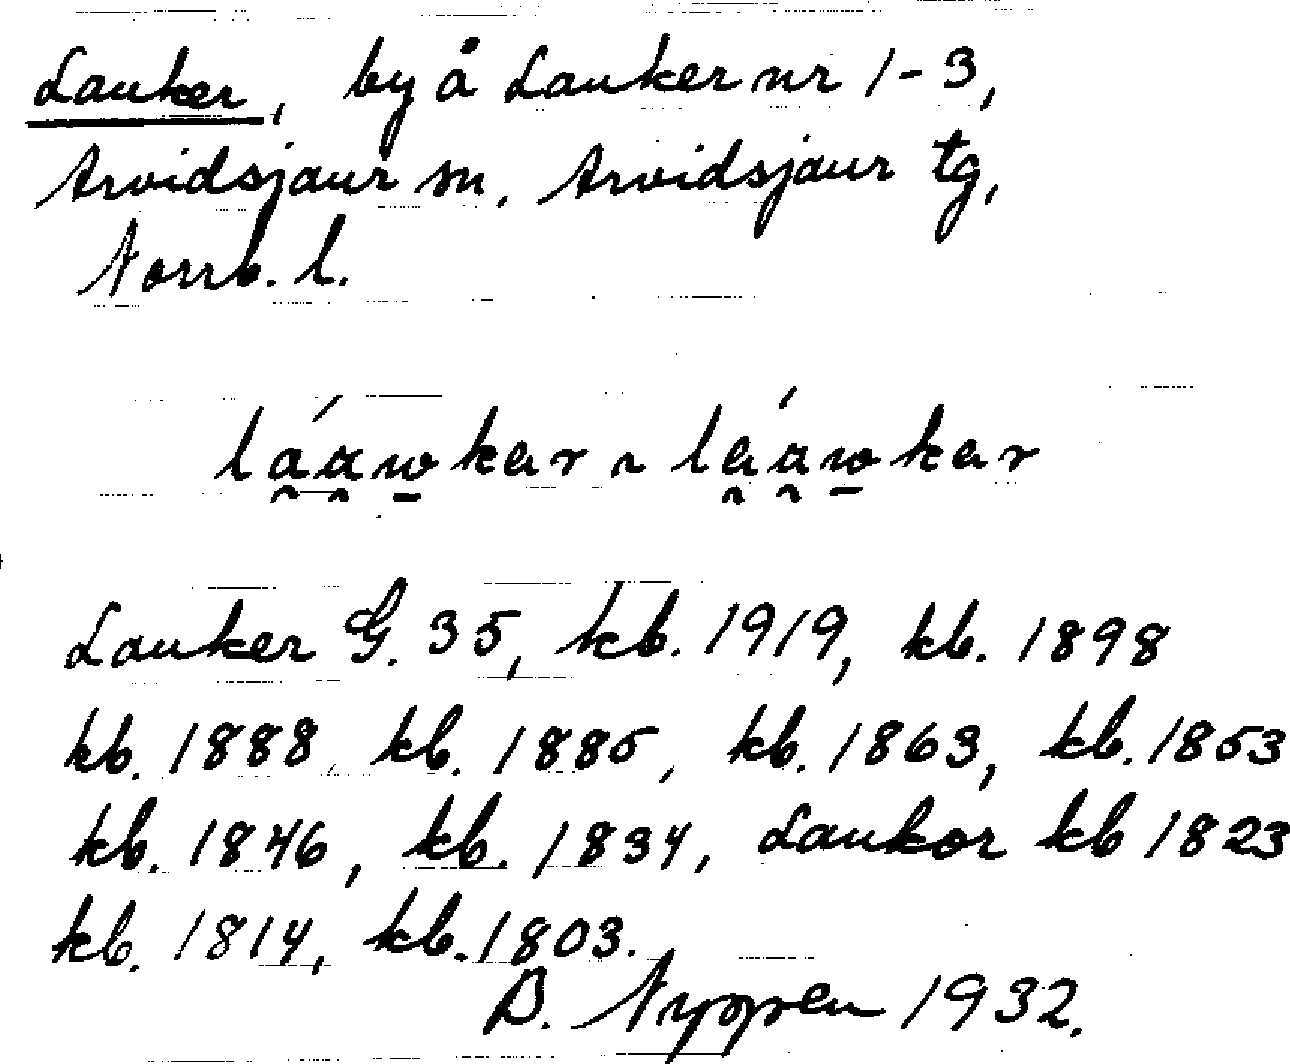 Lauker, by å Lauker nr 1-3,
Arvidsjaur sn, Arvidsjaur tg,
Norrb. l.
láawkar ~ láawkar
Lauker G. 35, kb. 1919, kb. 1898
kb. 1888, kb. 1885, kb. 1863, kb. 1853
kb. 1846, kb. 1834, Laukor kb 1823
kb. 1814, kb. 1803.
B. Nygren 1932.